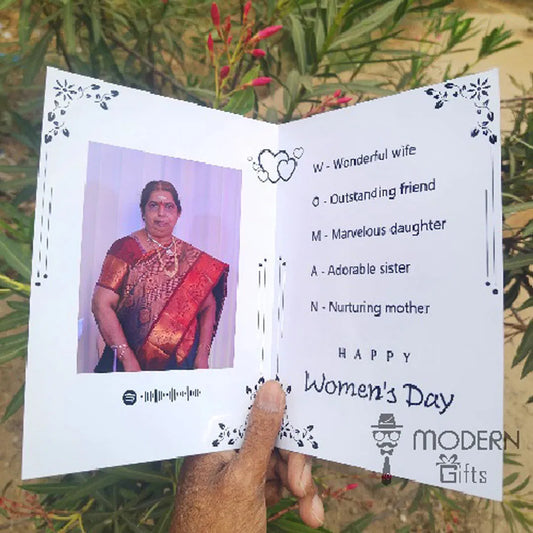 W - Wonderful wife
O - Outstanding friend
M - Marvelous daughter
A - Adorable sister
N - Nurturing mother
HAPPY
Women's Day
MODERN
Gifts